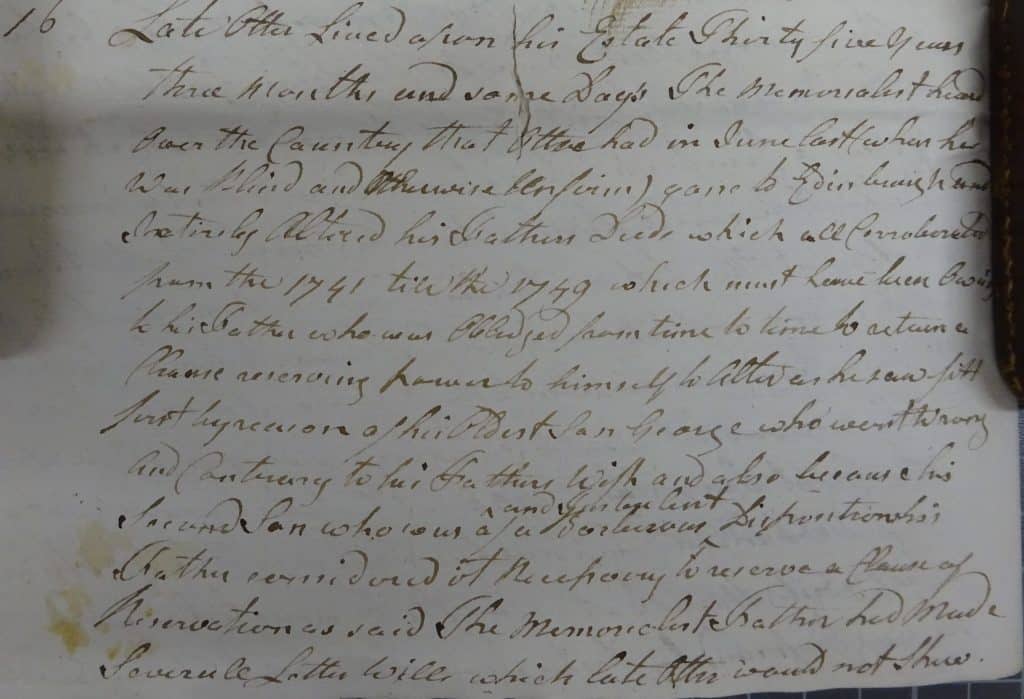 16
Late Otter Lived upon his Estate Thirty five Years
three Months and some Days The Memorialist heard
Over the Country that Otter had in June last (when he
Was Blind and Otherwise Unfirm) gone to Edinburgh and
Intirely Altered his Fathers Deeds which all Corroborated
from the 1741 till the 1749 which must have been Owing
to his Father who was Oblidged from time to time to return a
Clause reserving power to himself to Alter as he saw fitt
first by reason of his Oldest Son George who went Wrong
and Contrary to his Fathers Wish and also because his
and
Second Son who was of a barbarous Disposition his
Father considered it Necessary to reserve a Clause of
Reservation as said The Memorialists Father had Made
Severall Latter Wills which late Otter would not Shew.